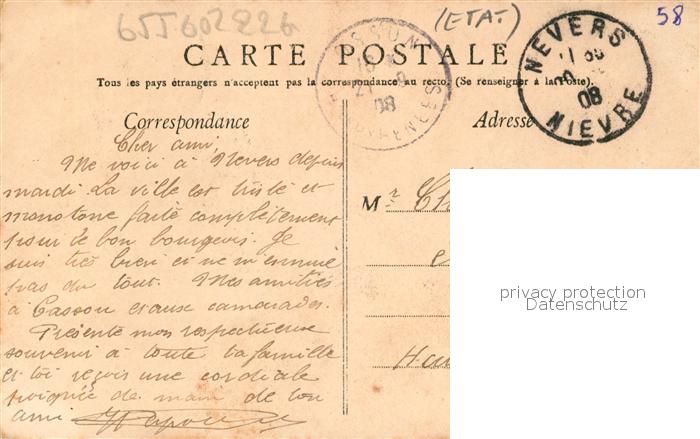 65J602826
(ETAT)
58
CARTE POSTALE
Tous les pays étrangers n'acceptent pas la correspondance au recto. (Se renseigner à la Poste).
NEVERS
08
NIEVRE
08
Correspondance
Adresse
Cher ami,
Me voici à Nevers depuis
mardi. La ville est triste et
monotone faite complètement
pour le bon bourgeois. Je
suis très bien et ne m'ennuie
pas du tout. Mes amitiés
à Casson et aux camarades.
Présente mon respectueux
souvenir à toute ta famille
et toi reçois une cordiale
poignée de main de ton
ami
Mr
privacy protection
Datenschutz